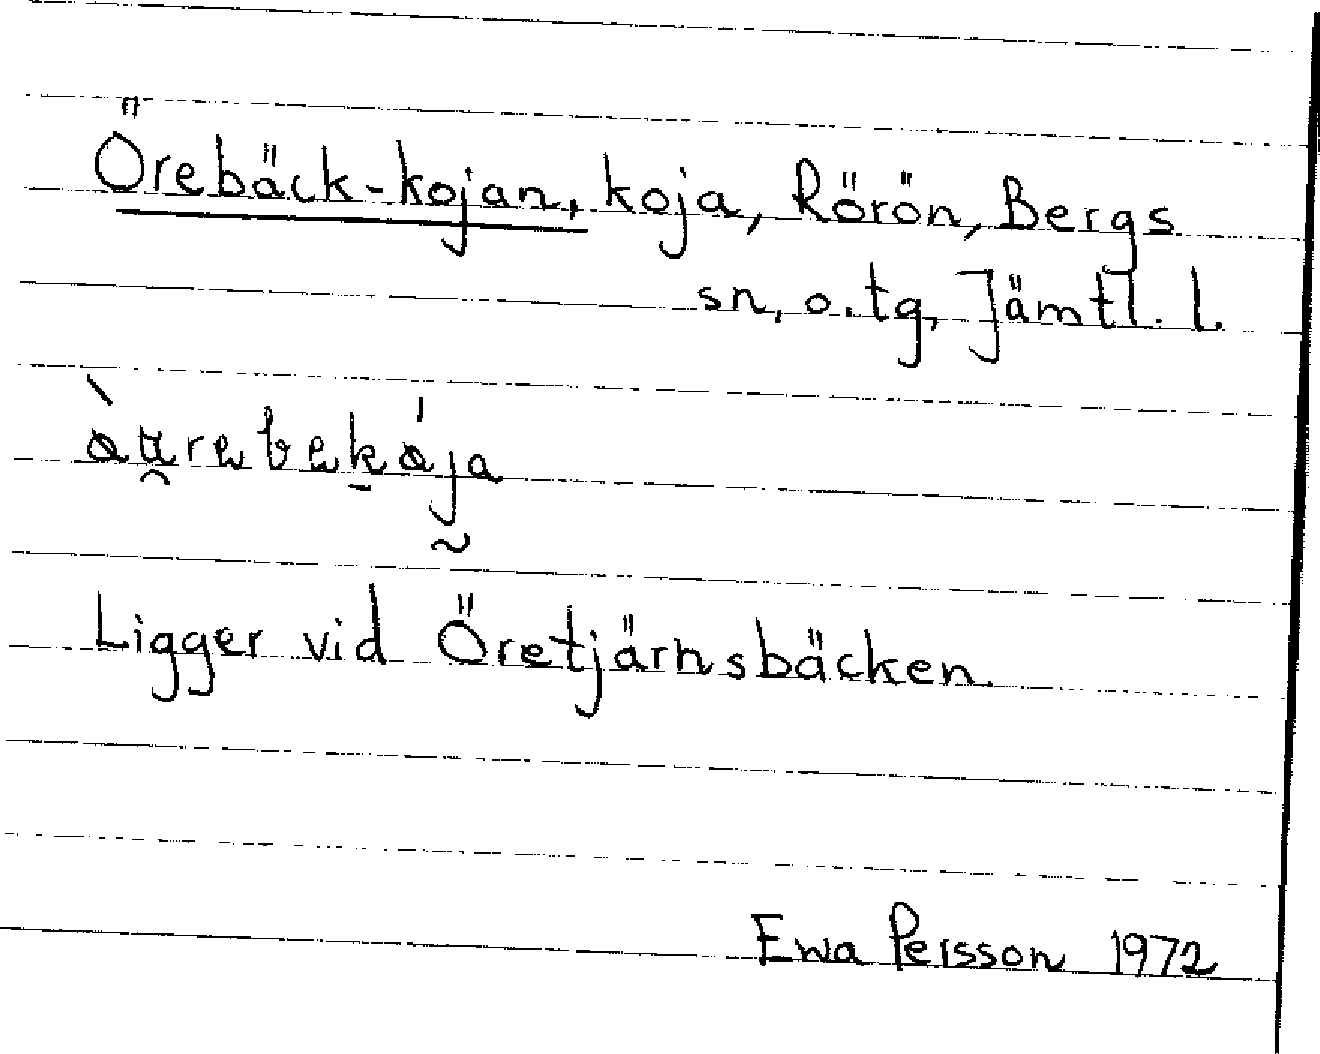 Örebäck-kojan, koja, Rörön, Bergs
sn, o. tg, Jämtl. l.
Ligger vid Öretjärnsbäcken.
Ewa Persson 1972